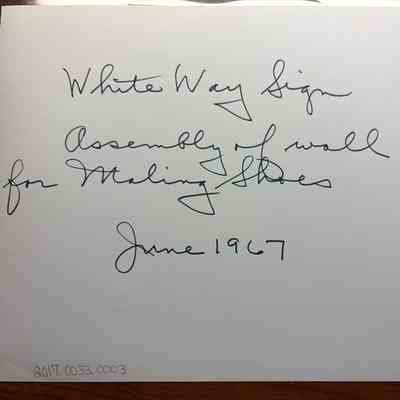 White Way Sign
Assembly of wall
for Maling Shoes
June 1967
2017.0033.0003